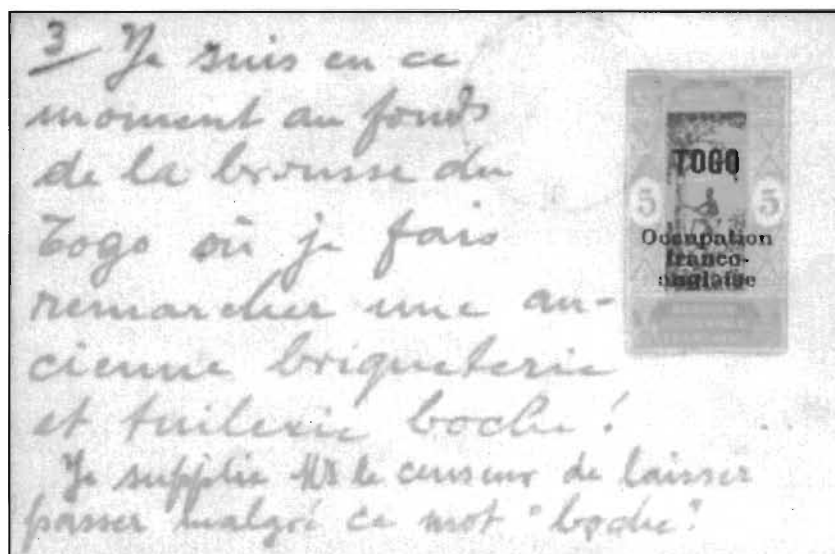 3 Je suis en ce
moment au fonds
de la brousse du
Togo où je fais
remarcher une an-
cienne briqueterie
et tuilerie boche !
Je supplie Mr le censeur de laisser
passer malgré ce mot "boche"
TOGO
5 5
Occupation
franco-
anglaise